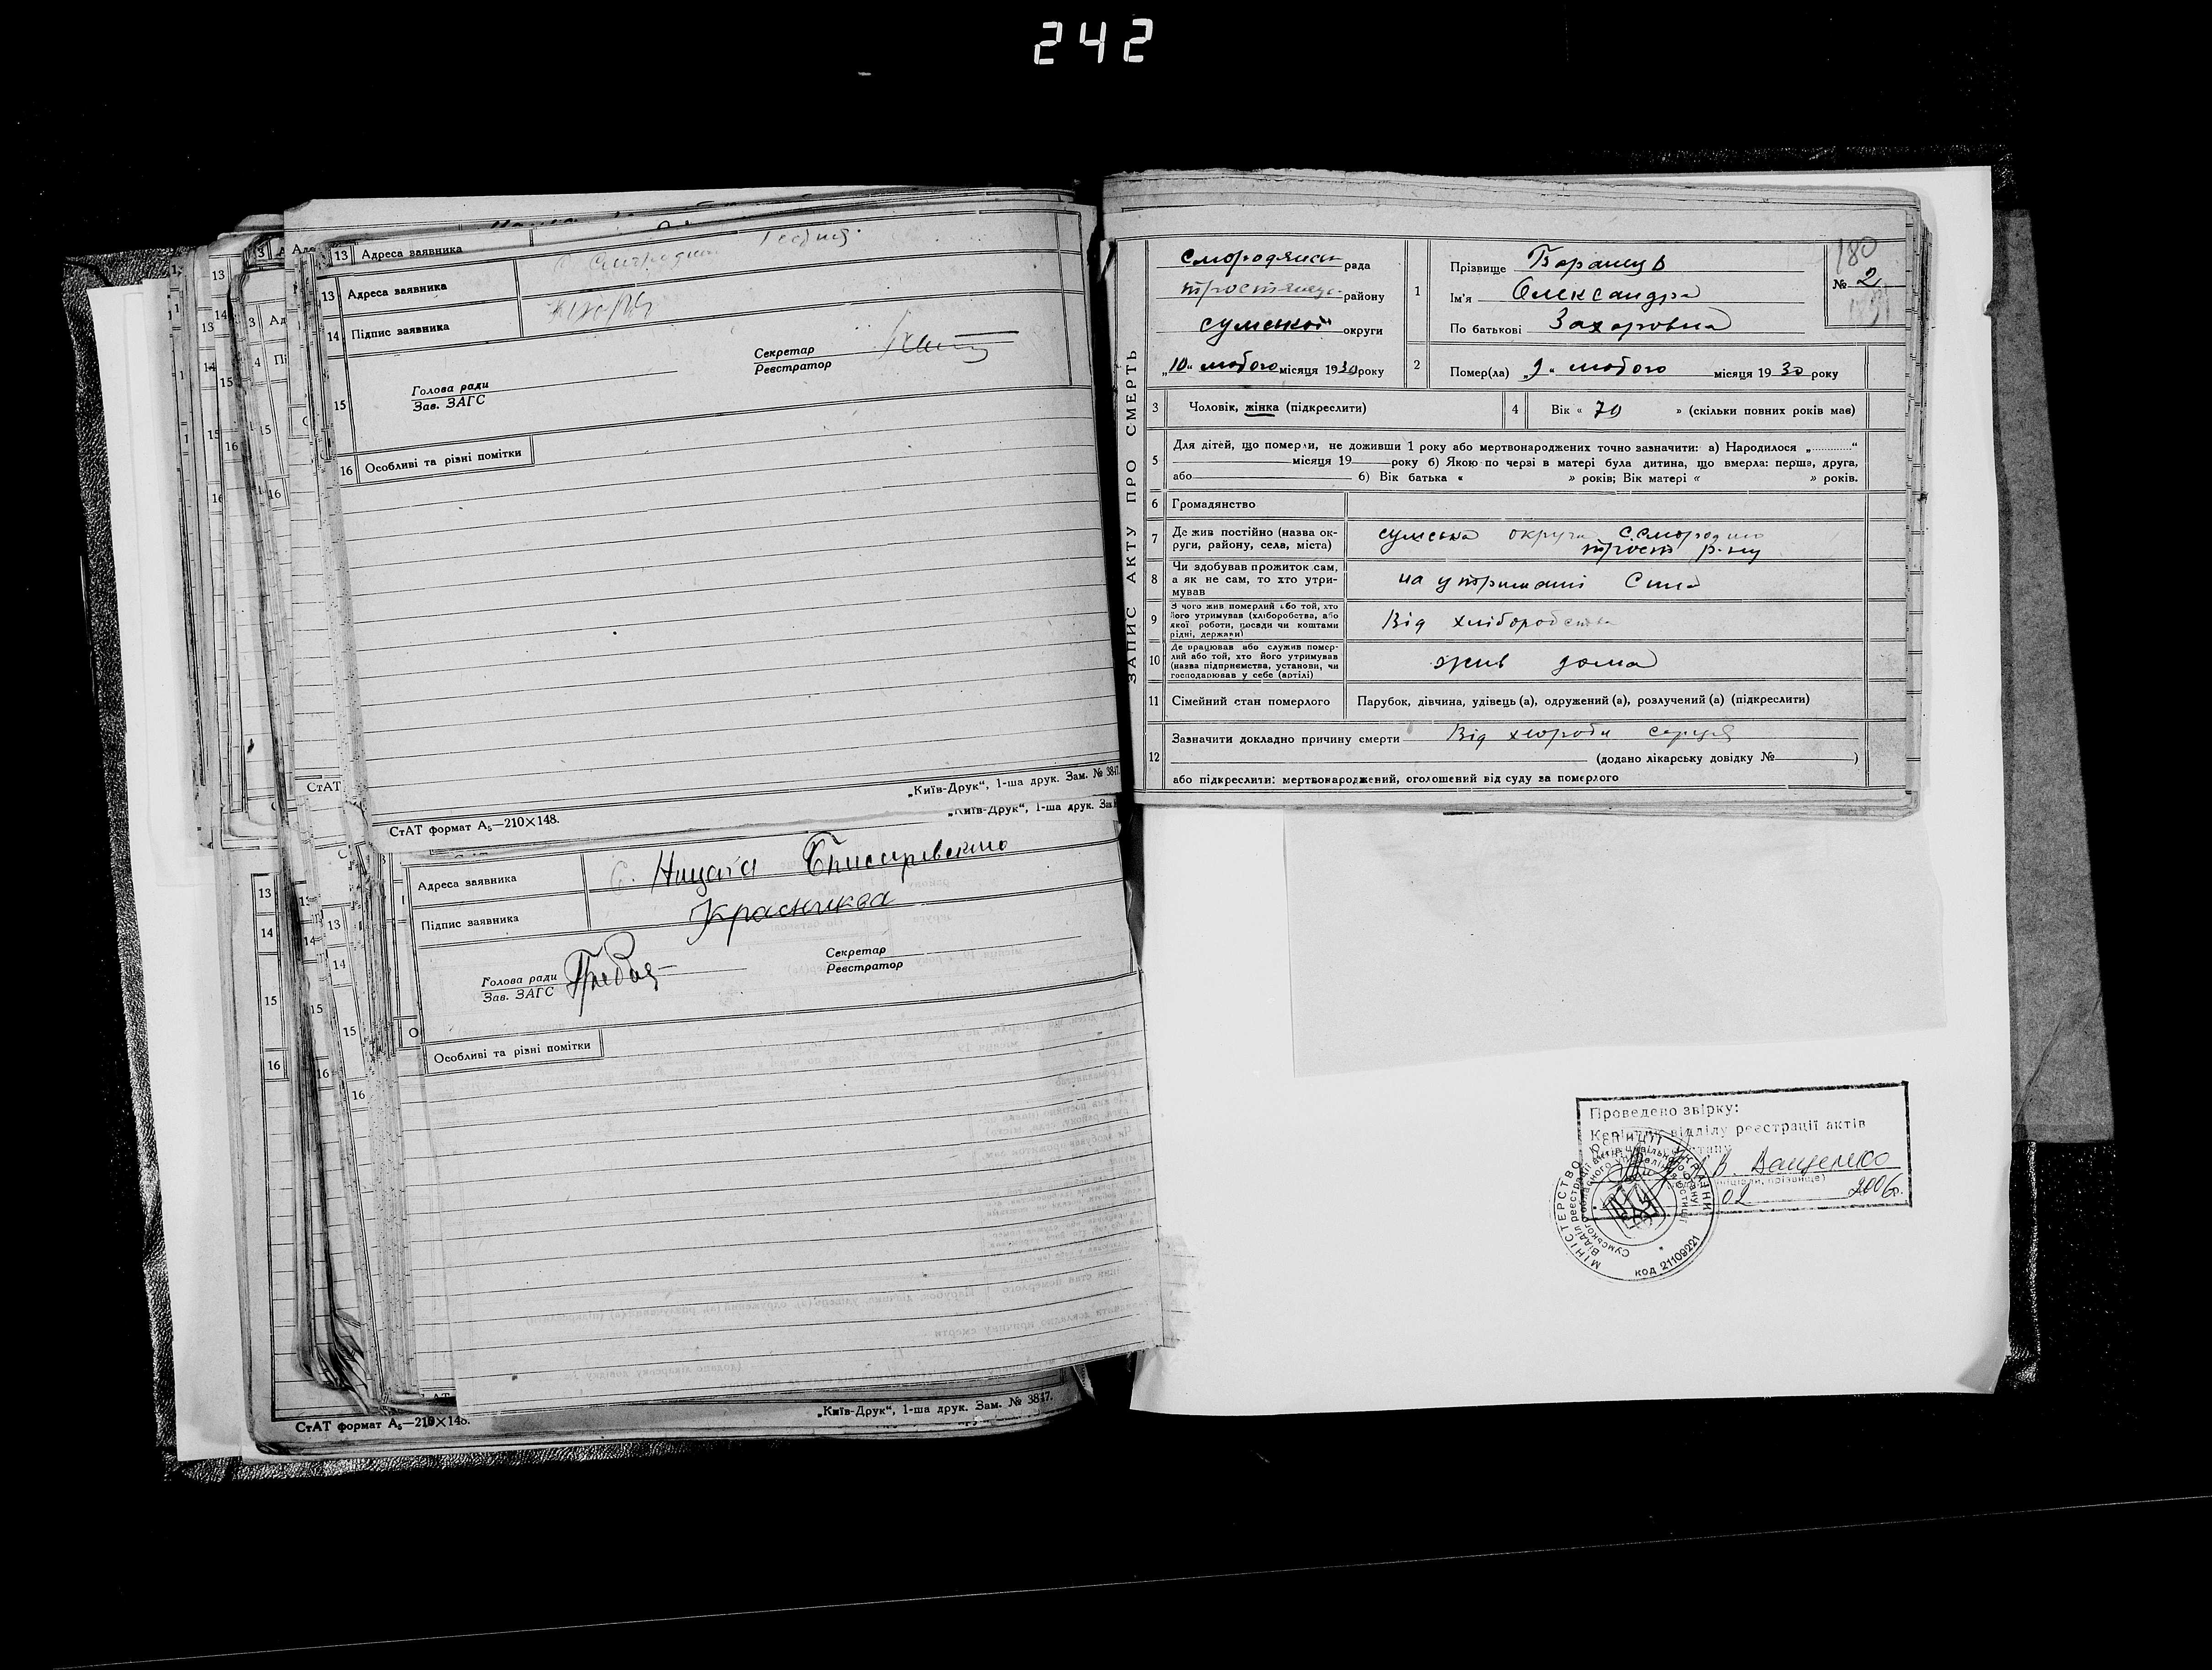 242
13 Адреса заявника
13 Адреса заявника
14 Підпис заявника
Секретар
Реєстратор
Голова ради
Зав. ЗАГС
15
16 Особливі та різні помітки
„Київ-Друк“, 1-ша друк. Зам. № 3847.
СтАТ формат А₅—210×148.
„Київ-Друк“, 1-ша друк.
Адреса заявника с. Ницаха
Підпис заявника Красникова
Секретар
Реєстратор
Голова ради
Зав. ЗАГС
Особливі та різні помітки
„Київ-Друк“, 1-ша друк. Зам. № 3847.
СтАТ формат А₅—210×148.
ЗАПИС АКТУ ПРО СМЕРТЬ
Смородянська рада
Тростянец. району
Сумської округи
„10“ лютого місяця 1930 року
1 Прізвище Баранець
Ім'я Олександра
По батькові Захаровна
180
№ 2
2 Помер(ла) „9“ лютого місяця 1930 року
3 Чоловік, жінка (підкреслити)
4 Вік « 70 » (скільки повних років мав)
5 Для дітей, що померли, не доживши 1 року або мертвонароджених точно зазначити: а) Народилося „............“
місяця 19 року б) Якою по черзі в матері була дитина, що вмерла: перша, друга,
або б) Вік батька « » років; Вік матері « » років.
6 Громадянство
7 Де жив постійно (назва округи, району, села, міста) сумська округа с. Смородино
трост р-ну
8 Чи здобував прожиток сам, а як не сам, то хто утримував на утриманні Сина
9 З чого жив померлий або той, хто його утримував (хліборобства, або якої роботи, посади чи коштами рідні, держави) Від хліборобства
10 Де працював або служив померлий або той, хто його утримував (назва підприємства, установи, чи господарював у себе (артілі) жив дома
11 Сімейний стан померлого Парубок, дівчина, удівець (а), одружений (а), розлучений (а) (підкреслити)
12 Зазначити докладно причину смерти Від хвороби серця
(додано лікарську довідку № )
або підкреслити: мертвонароджений, оголошений від суду за померлого
Проведено звірку:
Керівник відділу реєстрації актів
В. Ващенко
02 2006р.
МІНІСТЕРСТВО ЮСТИЦІЇ УКРАЇНИ
код 21109221